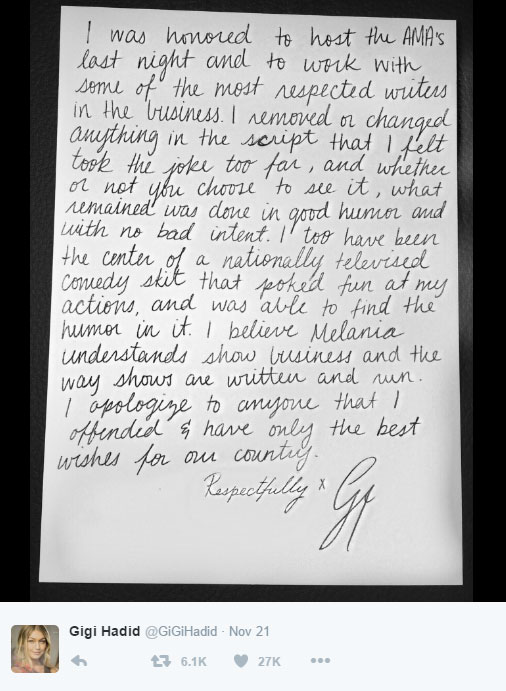 I was honored to host the AMA's
last night and to work with
some of the most respected writers
in the business. I removed or changed
anything in the script that I felt
took the joke too far, and whether
or not you choose to see it, what
remained was done in good humor and
with no bad intent. I too have been
the center of a nationally televised
comedy skit that poked fun at my
actions, and was able to find the
humor in it. I believe Melania
understands show business and the
way shows are written and run.
I apologize to anyone that I
offended & have only the best
wishes for our country.
Respectfully x Gi
Gigi Hadid @GiGiHadid · Nov 21
6.1K 27K